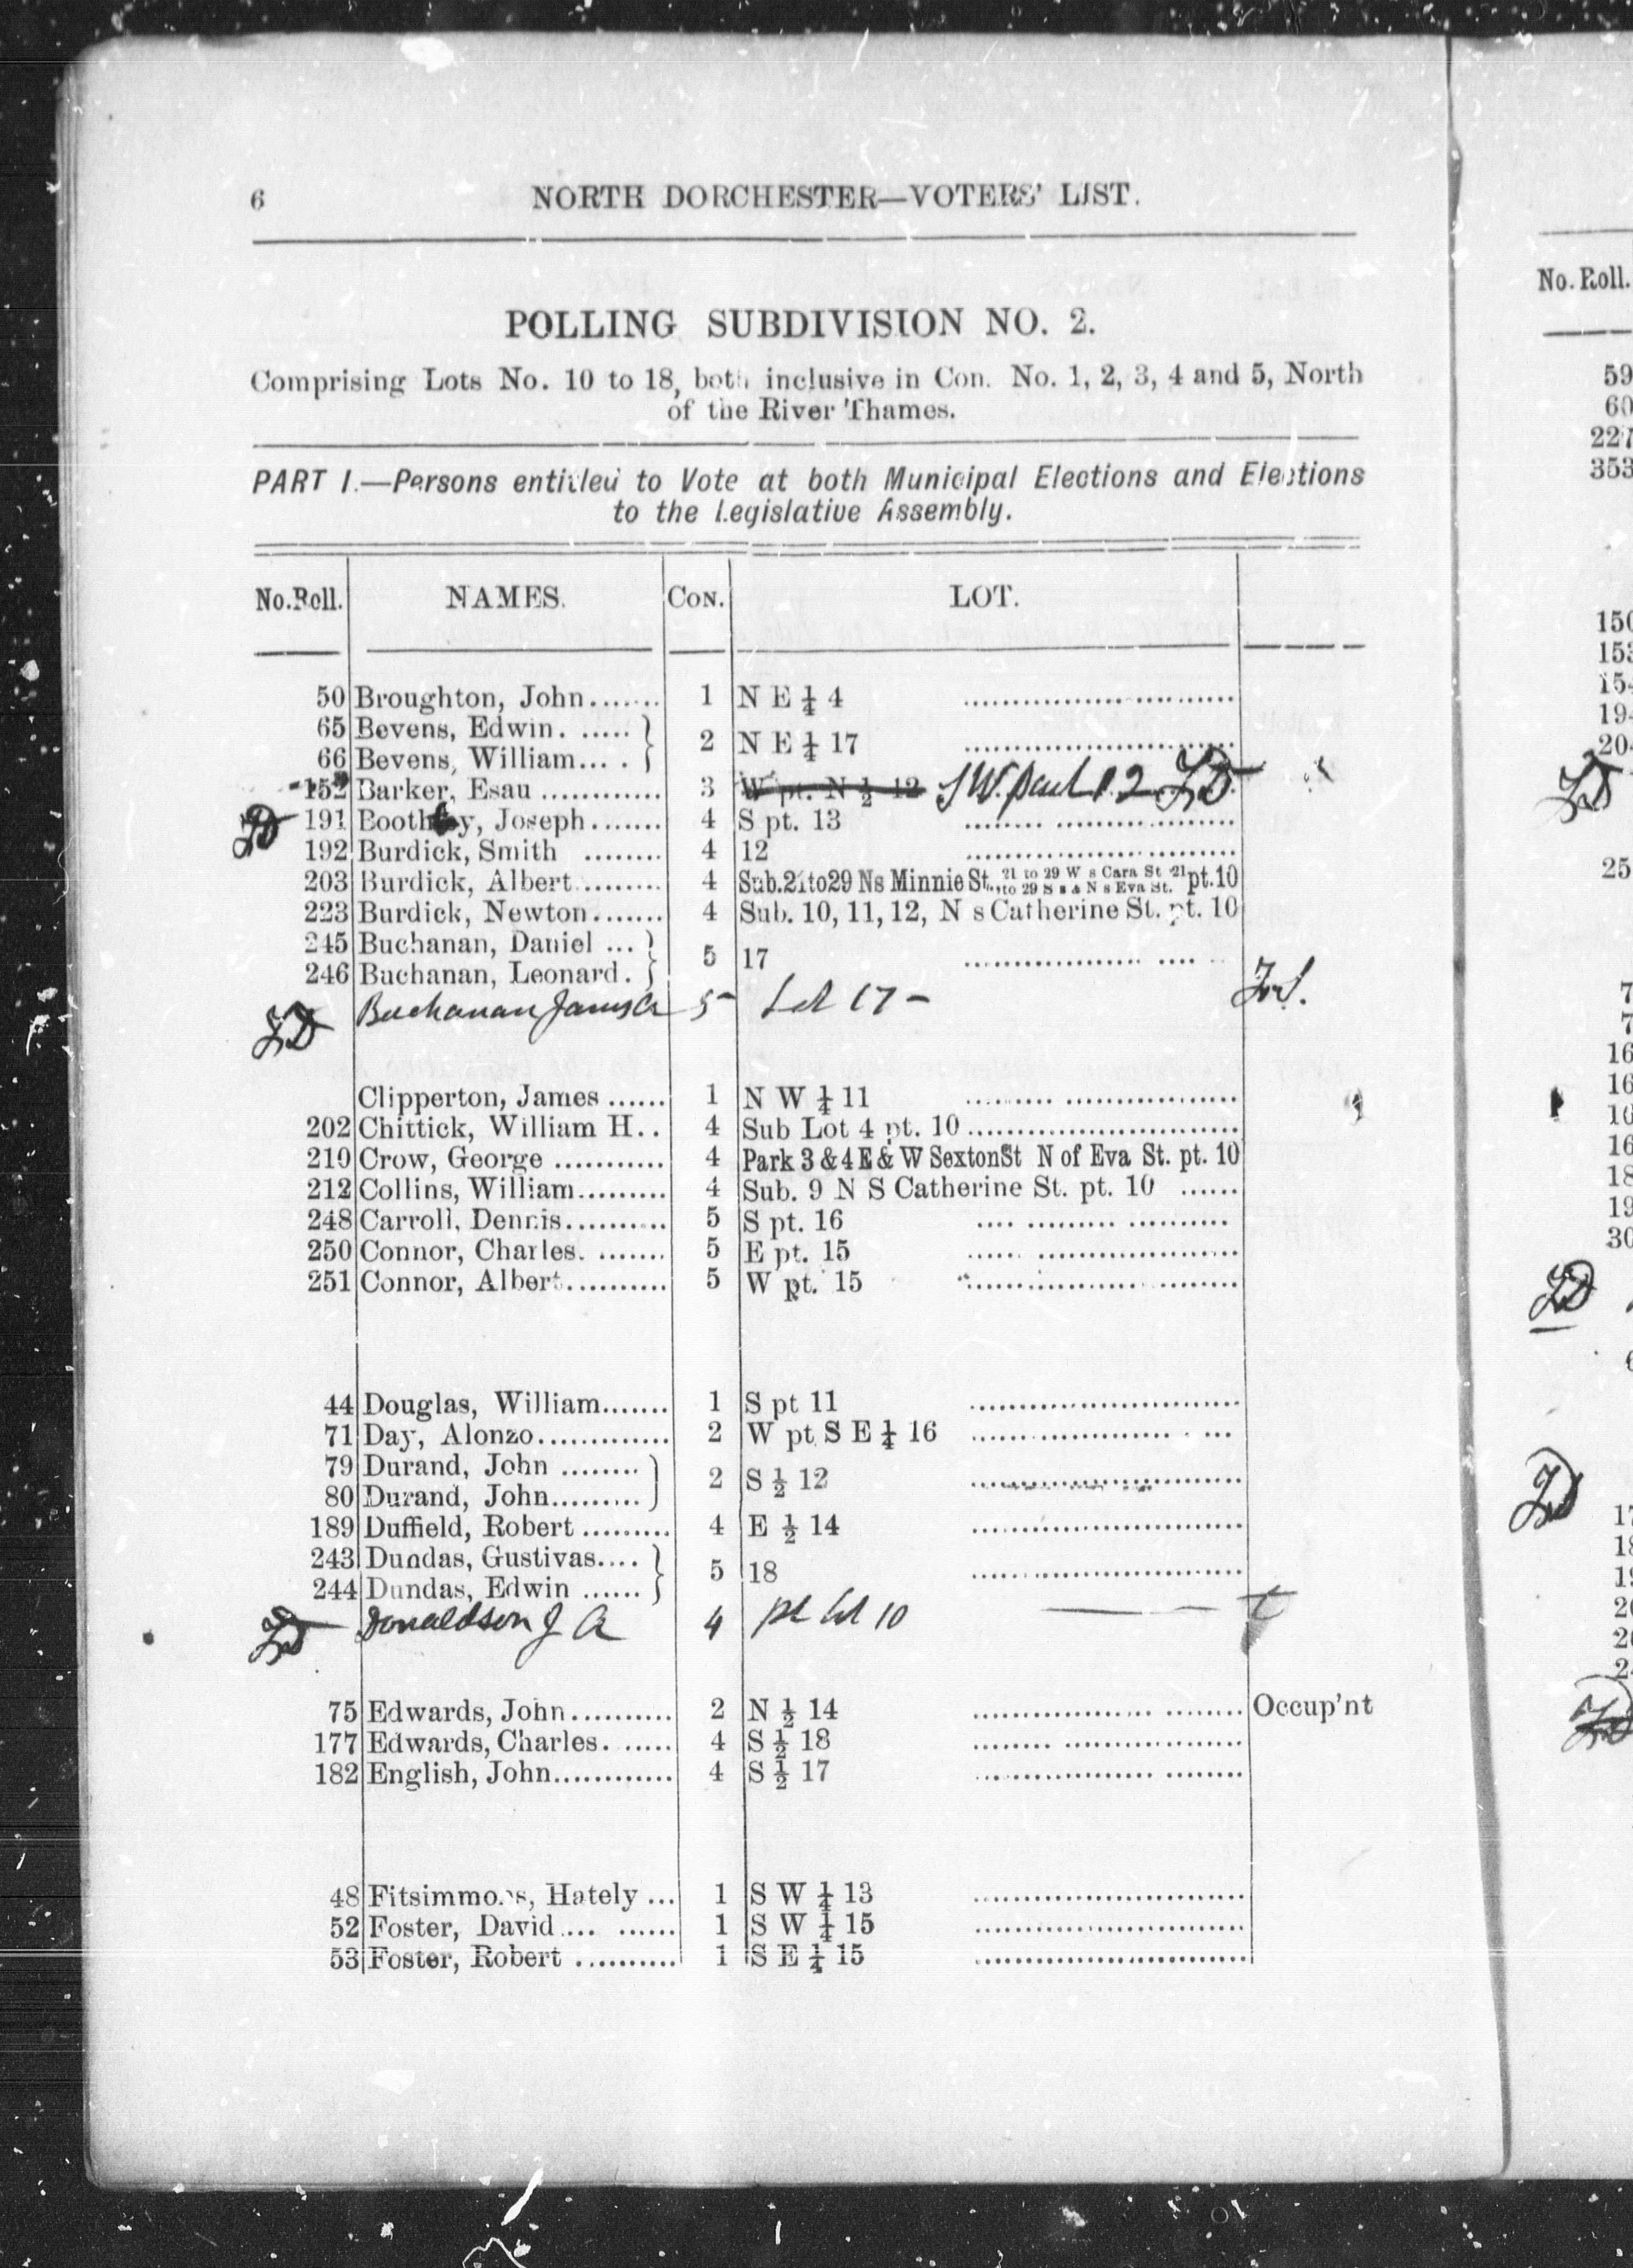 6 NORTH DORCHESTER—VOTERS' LIST.
POLLING SUBDIVISION NO. 2.
Comprising Lots No. 10 to 18, both inclusive in Con. No. 1, 2, 3, 4 and 5, North
of the River Thames.
PART I.—Persons entitled to Vote at both Municipal Elections and Elections
to the Legislative Assembly.
No.Roll. NAMES. CON. LOT.
50 Broughton, John....... 1 N E ¼ 4
65 Bevens, Edwin. .....
66 Bevens, William... . } 2 N E ¼ 17
152 Barker, Esau ............ 3 W pt. N ½ 12 S W. part 12
191 Boothby, Joseph....... 4 S pt. 13
192 Burdick, Smith ........ 4 12
203 Burdick, Albert......... 4 Sub. 21 to 29 Ns Minnie St., 21 to 29 W s Cara St 21 to 29 S s & N s Eva St. pt. 10
223 Burdick, Newton....... 4 Sub. 10, 11, 12, N s Catherine St. pt. 10
245 Buchanan, Daniel ...
246 Buchanan, Leonard. } 5 17
Buchanan James A 5 Lot 17 –
Clipperton, James ...... 1 N W ¼ 11
202 Chittick, William H.. 4 Sub Lot 4 pt. 10
210 Crow, George ........... 4 Park 3 & 4 E & W Sexton St N of Eva St. pt. 10
212 Collins, William......... 4 Sub. 9 N S Catherine St. pt. 10 ......
248 Carroll, Dennis.......... 5 S pt. 16
250 Connor, Charles. ....... 5 E pt. 15
251 Connor, Albert.......... 5 W pt. 15
44 Douglas, William....... 1 S pt 11
71 Day, Alonzo............. 2 W pt S E ¼ 16
79 Durand, John ........
80 Durand, John......... } 2 S ½ 12
189 Duffield, Robert ......... 4 E ½ 14
243 Dundas, Gustivas....
244 Dundas, Edwin ...... } 5 18
Donaldson J A 4 pt lot 10
75 Edwards, John.......... 2 N ½ 14 Occup'nt
177 Edwards, Charles. ...... 4 S ½ 18
182 English, John............ 4 S ½ 17
48 Fitsimmons, Hately ... 1 S W ¼ 13
52 Foster, David .... ...... 1 S W ¼ 15
53 Foster, Robert .......... 1 S E ¼ 15
No. Roll.
59
60
227
353